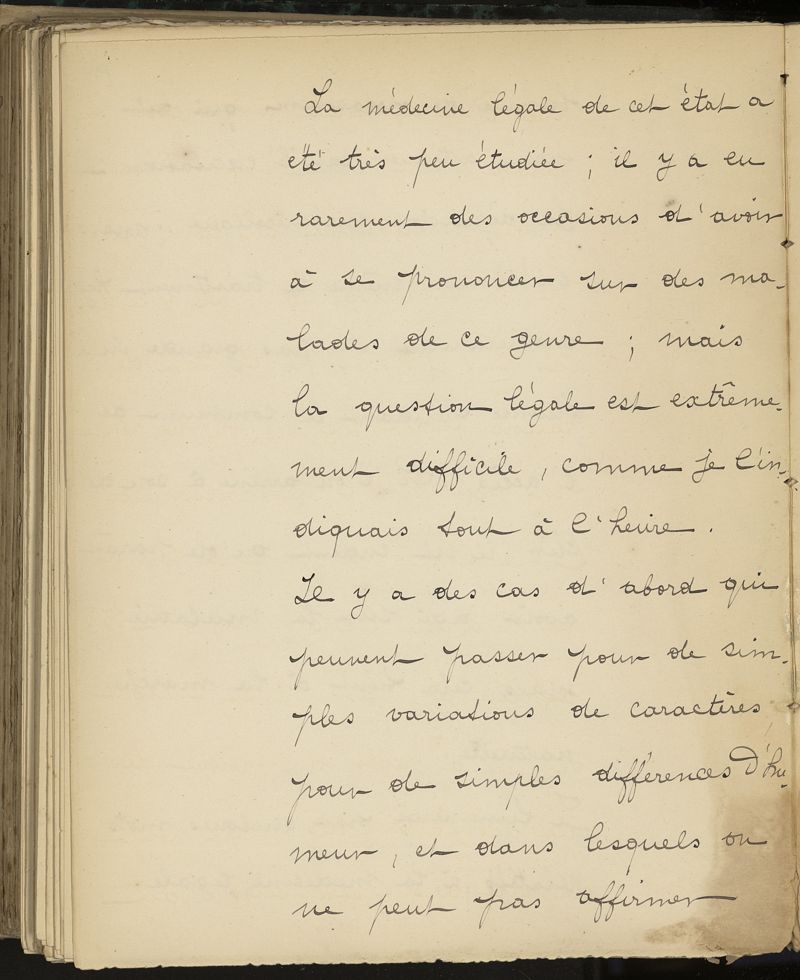 La médecine légale de cet état a
été très peu étudiée ; il y a eu
rarement des occasions d'avoir
à se prononcer sur des ma-
lades de ce genre ; mais
la question légale est extrême-
ment difficile, comme je l'in-
diquais tout à l'heure.
Il y a des cas d'abord qui
peuvent passer pour de sim-
ples variations de caractères,
pour de simples différences d'hu-
meur, et dans lesquels on
ne peut pas affirmer